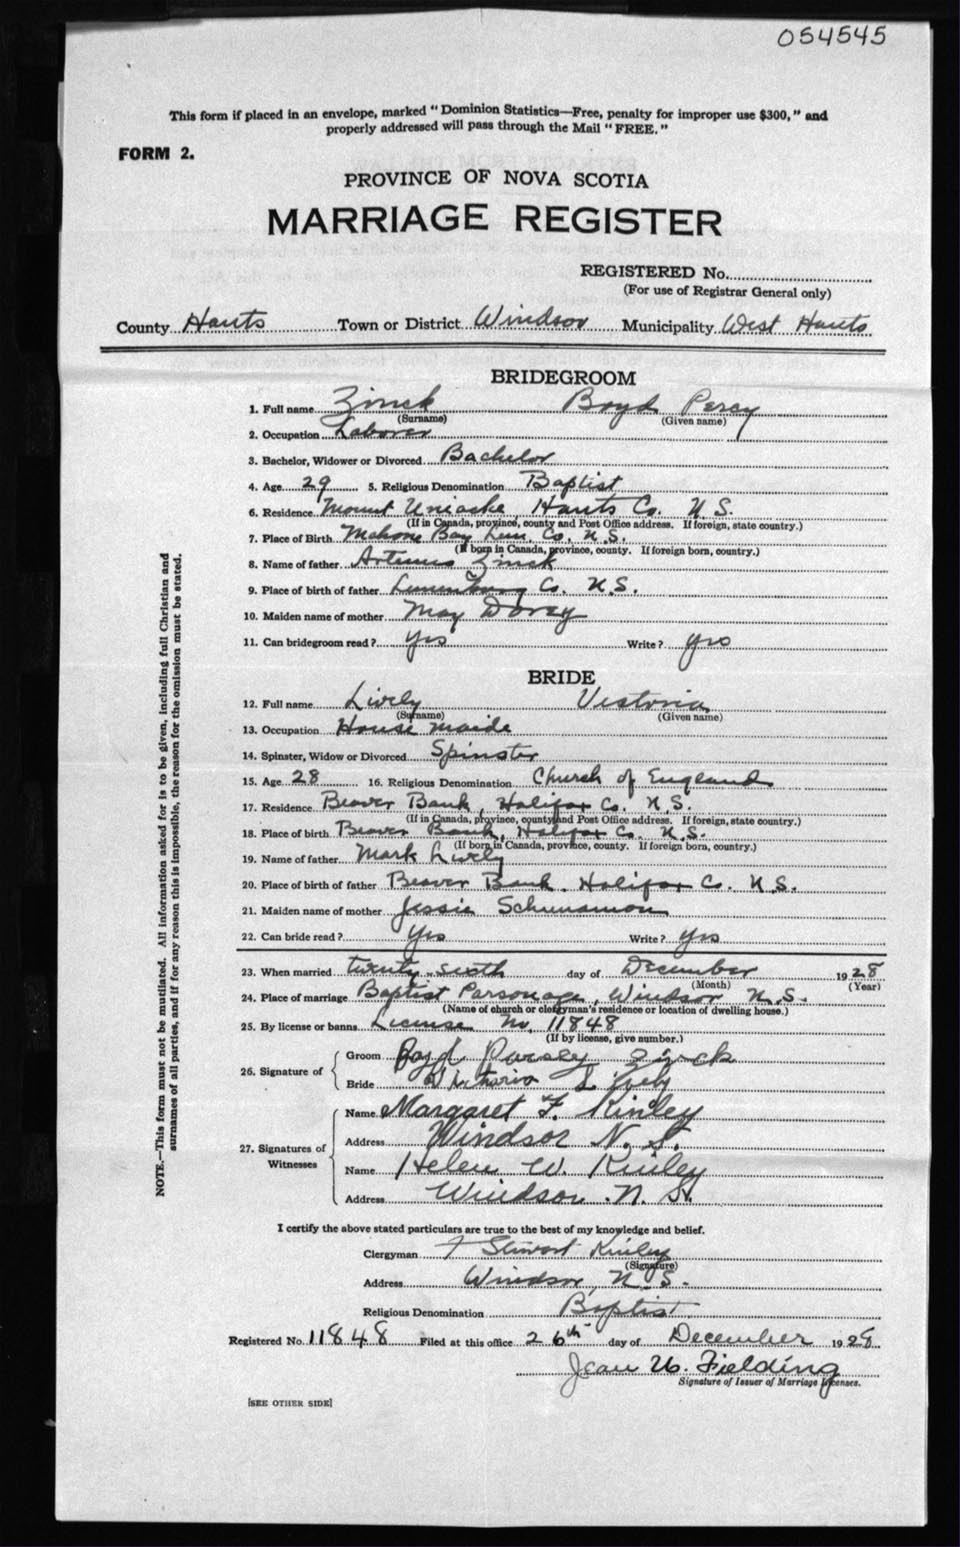 054545
This form if placed in an envelope, marked "Dominion Statistics—Free, penalty for improper use $300," and
properly addressed will pass through the Mail "FREE."
FORM 2.
PROVINCE OF NOVA SCOTIA
MARRIAGE REGISTER
REGISTERED No.
(For use of Registrar General only)
County Hants Town or District Windsor Municipality West Hants
BRIDEGROOM
1. Full name Zinck Boyd Percy
(Surname) (Given name)
2. Occupation Laborer
3. Bachelor, Widower or Divorced Bachelor
4. Age 29 5. Religious Denomination Baptist
6. Residence Mount Uniacke, Hants Co. N.S.
(If in Canada, province, county and Post Office address. If foreign, state country.)
7. Place of Birth Mahone Bay Lun. Co. N.S.
(If born in Canada, province, county. If foreign born, country.)
8. Name of father Artemus Zinck
9. Place of birth of father Lunenburg Co. N.S.
10. Maiden name of mother May
11. Can bridegroom read? yes Write? yes
BRIDE
12. Full name Lively Victoria
(Surname) (Given name)
13. Occupation House maide
14. Spinster, Widow or Divorced Spinster
15. Age 28 16. Religious Denomination Church of England
17. Residence Beaver Bank, Halifax Co. N.S.
(If in Canada, province, county and Post Office address. If foreign, state country.)
18. Place of birth Beaver Bank, Halifax Co. N.S.
(If born in Canada, province, county. If foreign born, country.)
19. Name of father Mark Lively
20. Place of birth of father Beaver Bank. Halifax Co. N.S.
21. Maiden name of mother Jessie
22. Can bride read? yes Write? yes
23. When married twenty-sixth day of December 1928
(Month) (Year)
24. Place of marriage Baptist Parsonage, Windsor N.S.
(Name of church or clergyman's residence or location of dwelling house.)
25. By license or banns License No. 11848
(If by license, give number.)
26. Signature of
Groom Boyd Percy Zinck
Bride Victoria Lively
27. Signatures of Witnesses
Name Margaret F. Kinley
Address Windsor N.S.
Name Helen W. Kinley
Address Windsor. N.S.
I certify the above stated particulars are true to the best of my knowledge and belief.
Clergyman F Stewart Kinley
(Signature)
Address Windsor, N.S.
Religious Denomination Baptist
Registered No. 11848 Filed at this office 26th day of December 1928
Jean W. Fielding
Signature of Issuer of Marriage Licenses.
[SEE OTHER SIDE]
NOTE.—This form must not be mutilated. All information asked for is to be given, including full Christian and
surnames of all parties, and if for any reason this is impossible, the reason for the omission must be stated.